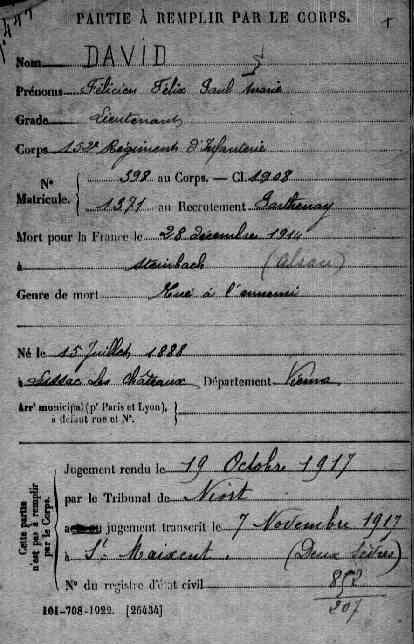 PARTIE À REMPLIR PAR LE CORPS.
Nom DAVID
Prénoms Félicien Félix Paul Marie
Grade Lieutenant
Corps 152e Régiment d'Infanterie
N° Matricule. 398 au Corps. — Cl. 1908
1371 au Recrutement Parthenay
Mort pour la France le 28 décembre 1914
à Steinbach (Alsace)
Genre de mort Tué à l'ennemi
Né le 15 Juillet 1888
à Lussac les Châteaux Département Vienne
Arrt municipal (pr Paris et Lyon), à défaut rue et N°.
Cette partie n'est pas à remplir par le Corps.
Jugement rendu le 19 Octobre 1917
par le Tribunal de Niort
jugement transcrit le 7 Novembre 1917
à St Maixent. (Deux Sèvres)
N° du registre d'état civil
207
101-708-1922. [26434]